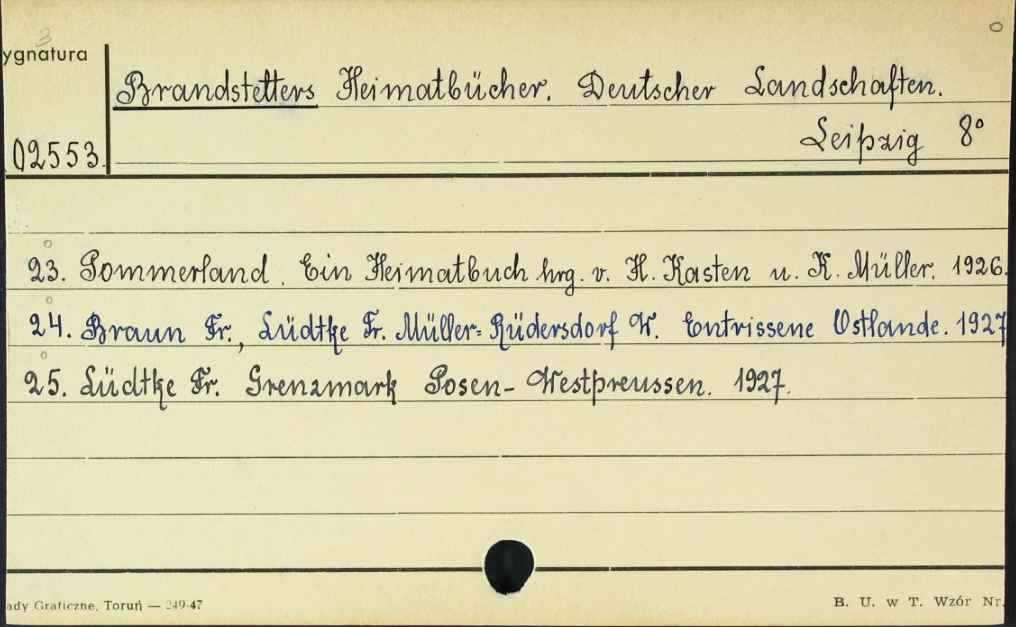 3
ygnatura
Brandstetters Heimatbücher. Deutscher Landschaften.
Leipzig 8°
02553.
23. Pommerland. Ein Heimatbuch hrg. v. H. Kasten u. K. Müller. 1926.
24. Braun Fr., Lüdtke Fr. Müller-Rüdersdorf W. Entrissene Ostlande. 1927
25. Lüdtke Fr. Grenzmark Posen-Westpreussen. 1927.
ady Graficzne, Toruń — 249-47
B. U. w T. Wzór Nr.